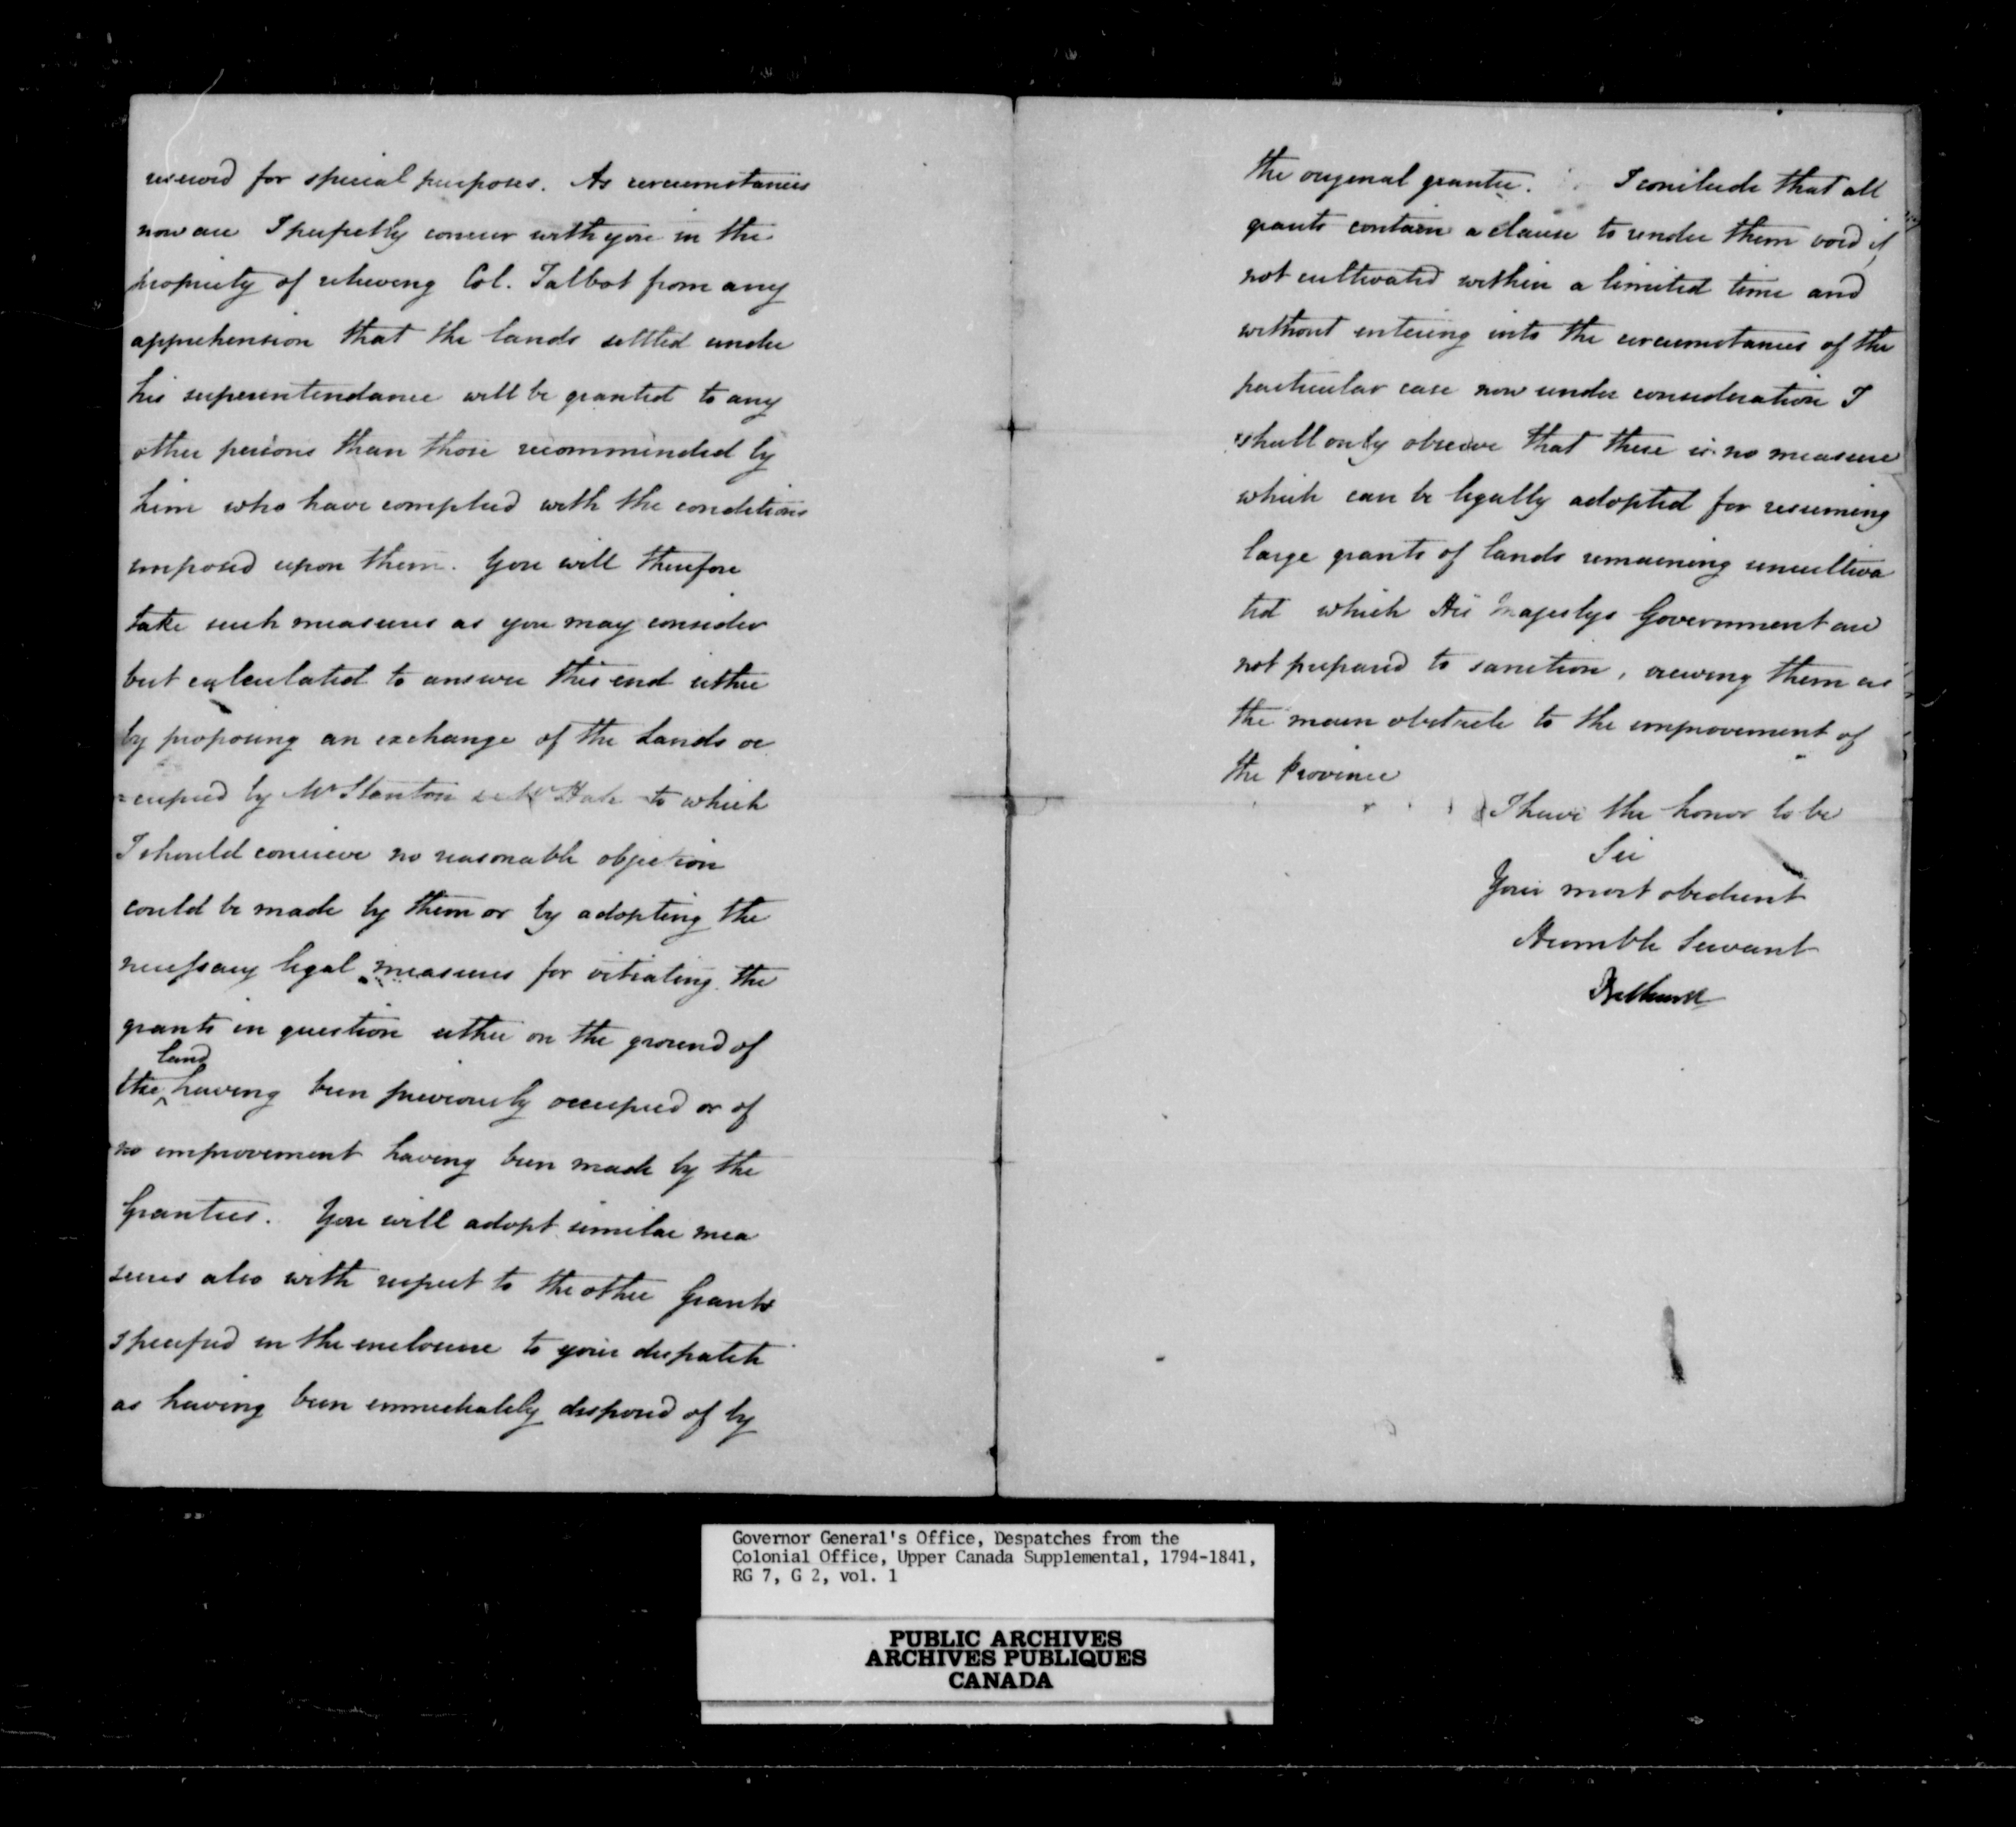 reserved for special purposes. As circumstances
now are I perfectly concur with you in the
propriety of relieving Col. Talbot from any
apprehension that the lands settled under
his superintendance will be granted to any
other persons than those recommended by
him who have complied with the conditions
imposed upon them. You will therefore
take such measures as you may consider
best calculated to answer this end either
by proposing an exchange of the Lands oc
=cupied by Mr Stanton & Mr to which
I should conceive no reasonable objection
could be made by them or by adopting the
necessary legal measures for vitiating the
grants in question either on the ground of
the land having been previously occupied or of
no improvement having been made by the
Grantees. You will adopt similar mea
sures also with respect to the other Grants
specified in the enclosure to your dispatch
as having been immediately disposed of by
the original grantee. I conclude that all
grants contain a clause to render them void if
not cultivated within a limited time and
without entering into the circumstances of the
particular case now under consideration I
shall only observe that there is no measure
which can be legally adopted for resuming
large grants of lands remaining uncultiva
ted which His Majestys Government are
not prepared to sanction, viewing them as
the main obstacle to the improvement of
the Province
I have the honor to be
Sir
Your most obedient
Humble Servant
Bathurst
Governor General's Office, Despatches from the
Colonial Office, Upper Canada Supplemental, 1794-1841,
RG 7, G 2, vol. 1
PUBLIC ARCHIVES
ARCHIVES PUBLIQUES
CANADA